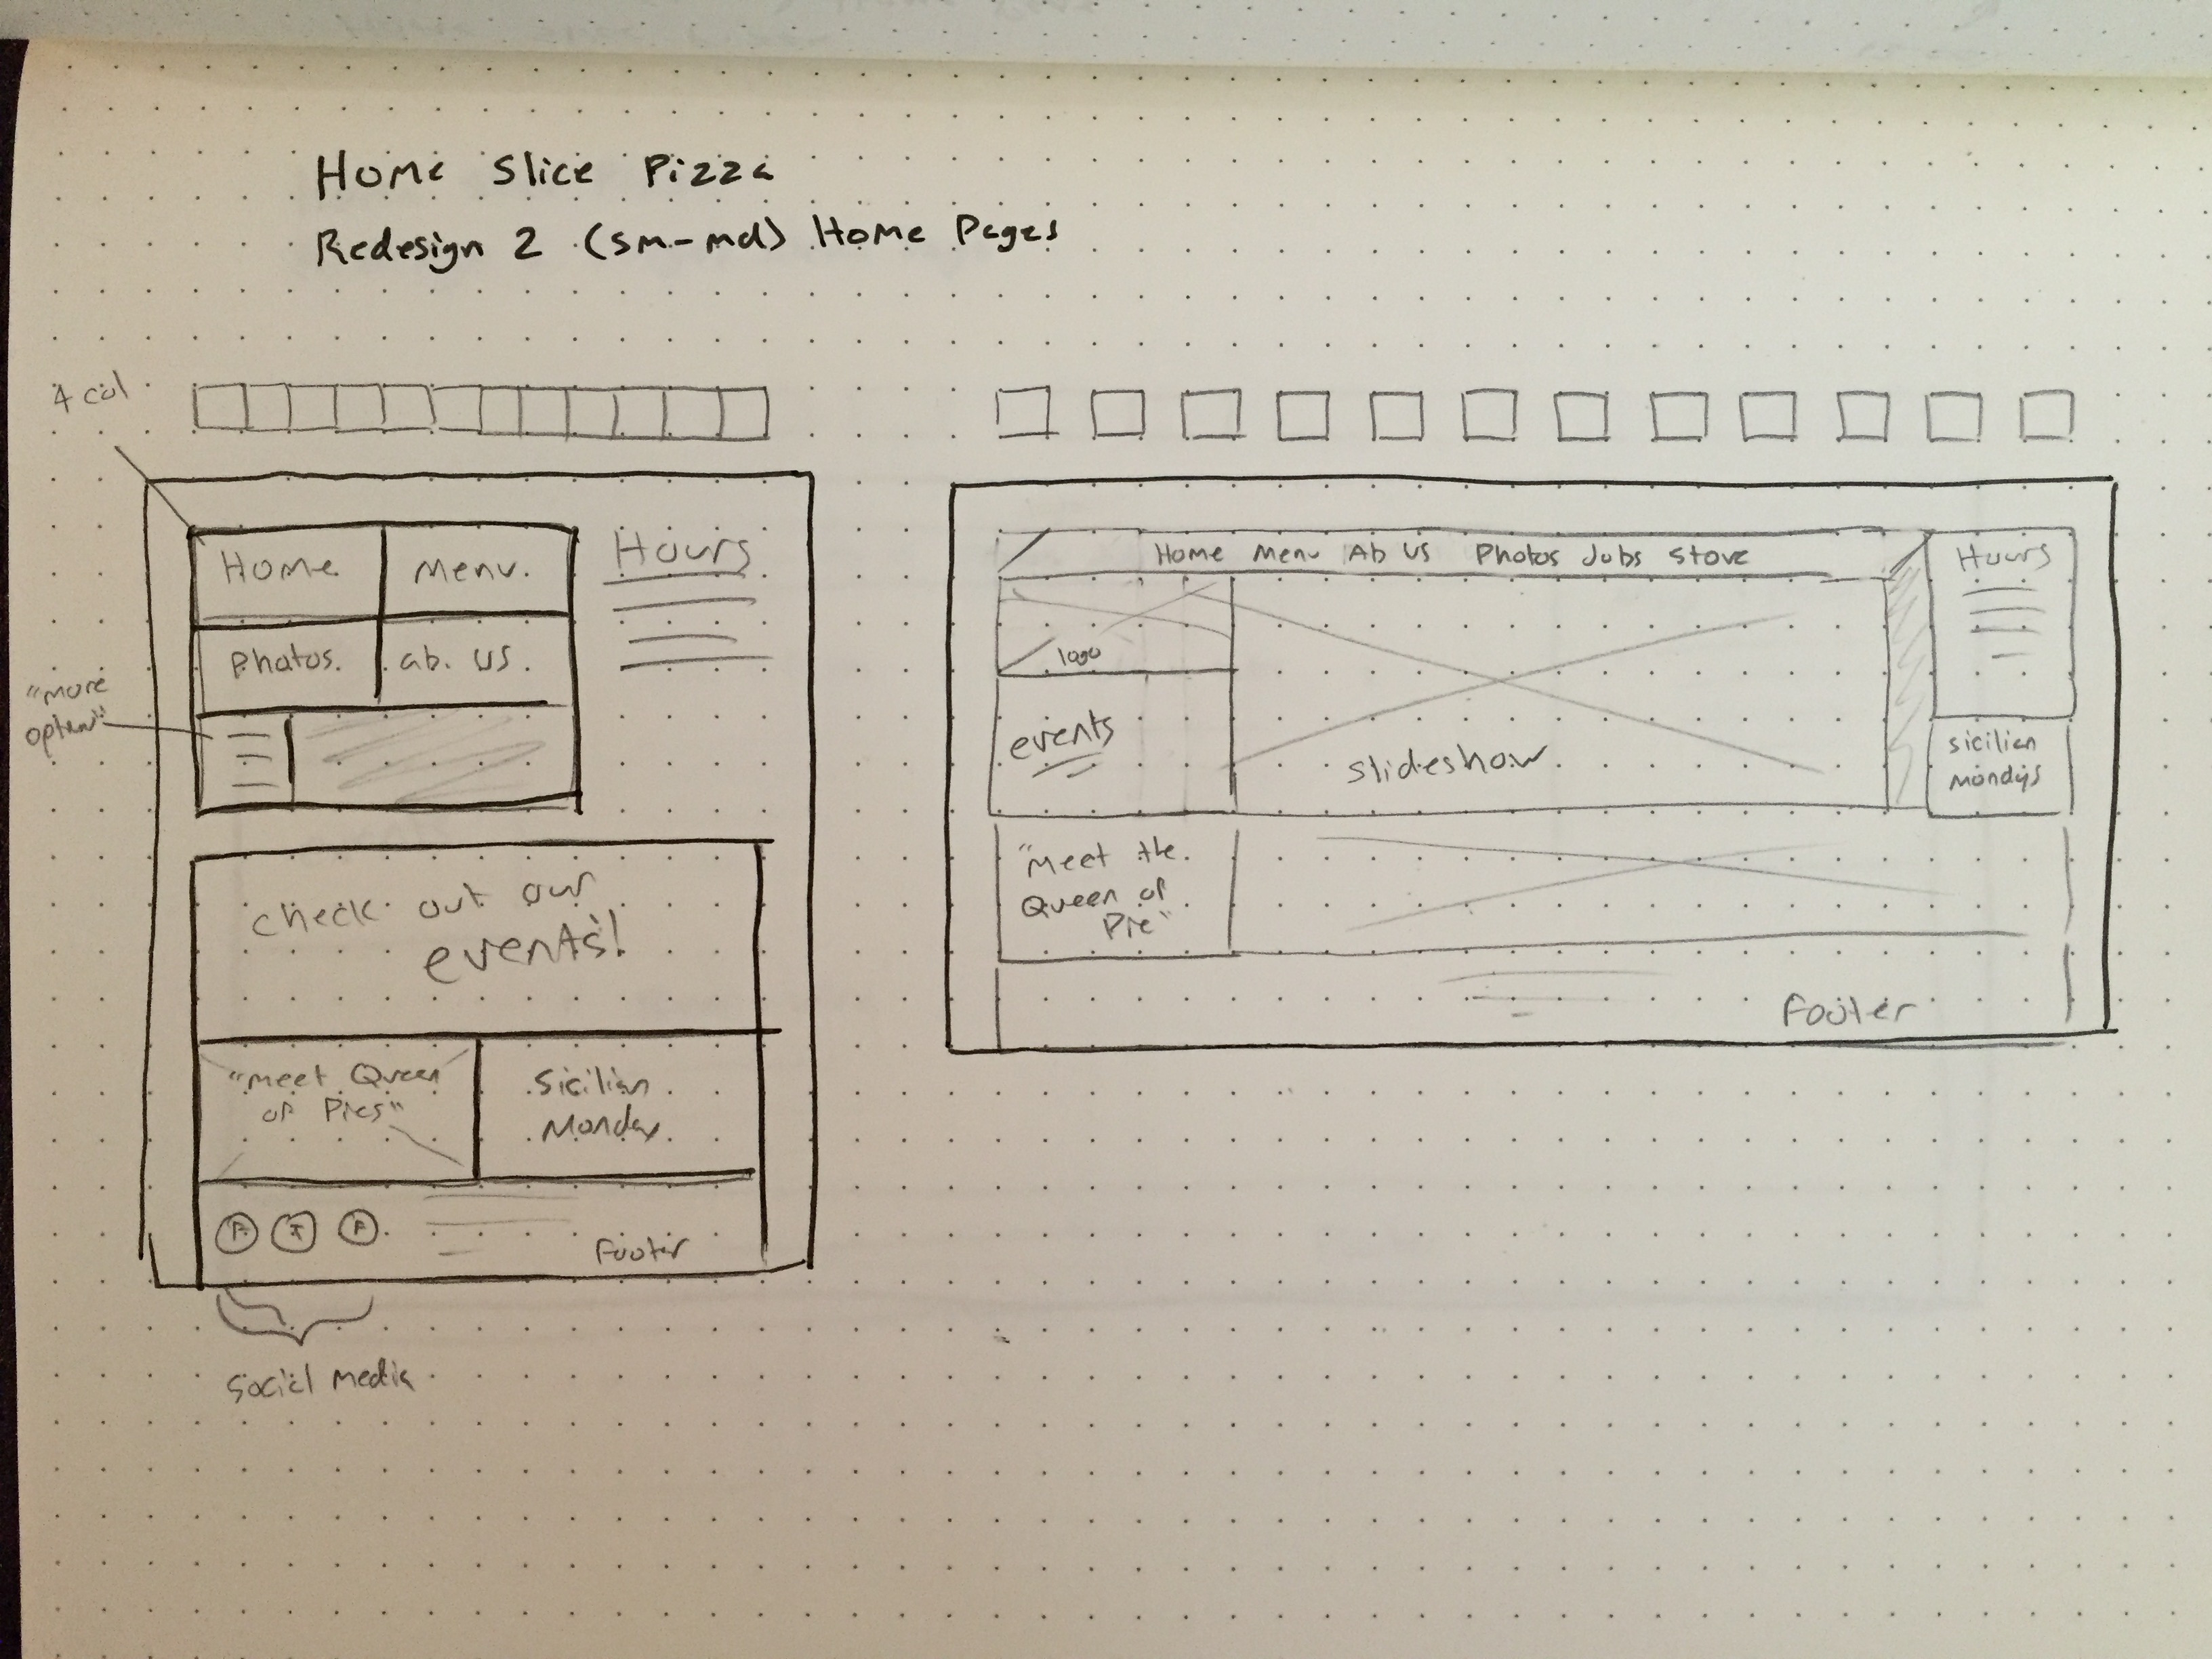 Home Slice Pizza
Redesign 2 (sm-md) Home Pages
4 col
Home
Menu.
Hours
Photos.
ab. us.
"more
option"
check out our
events!
"Meet Queen
of Pies"
Sicilian
Monday.
Footer
Social Media
Home Menu Ab Us Photos Jobs Store
Hours
logo
events
slideshow
sicilian
Mondys
"Meet the
Queen of
Pie"
Footer